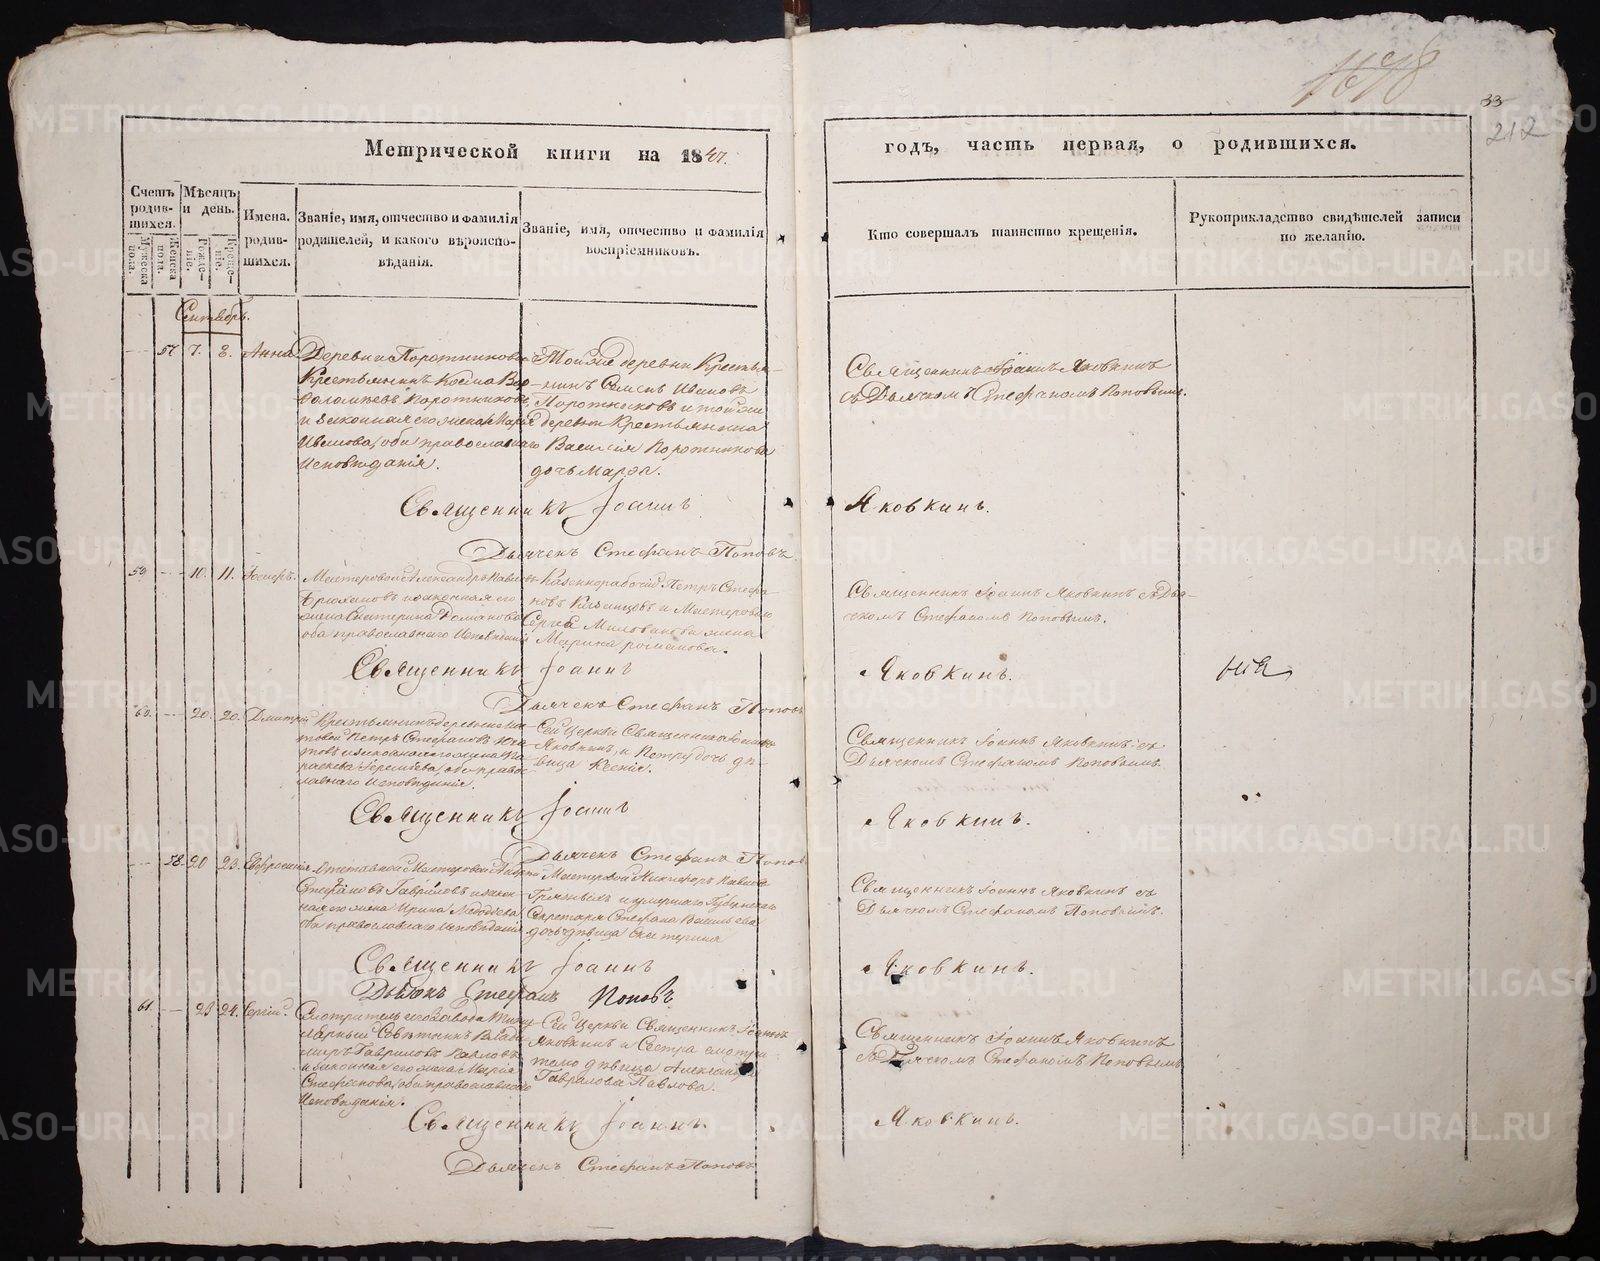 1678
33
212
Метрической книги на 1847.
годъ, часть первая, о родившихся.
Счетъ родив-шихся.
Мужеска пола.
Женска пола.
Мѣсяцъ и день.
Рожде-ніе.
Креще-ніе.
Имена. родив-шихся.
Званіе, имя, отчество и фамилія
родителей, и какого вѣроиспо-
вѣданія.
Званіе, имя, отчество и фамилія
воспріемниковъ.
Кто совершалъ таинство крещенія.
Рукоприкладство свидѣтелей записи
по желанію.
Сентябрь.
57 7. 8. Анна
Деревни Поротниковой
Крестьянинъ Косма Вар-
фоломеевъ Поротниковъ
и законная его жена Марья
Иванова, оба православнаго
Исповѣданія.
Той же деревни Крестья-
нинъ Семенъ Ивановъ
Поротниковъ и той же
деревни Крестьянина
Василія Поротникова
дочь Марѳа.
Священникъ Іоаннъ Яковкинъ
съ Дьячкомъ Стефаномъ Поповымъ.
Священникъ Іоаннъ Яковкинъ.
Дьячекъ Стефанъ Поповъ
59. 10. 11.
Мастеровой Александръ
законная его
жена Екатерина Романова
оба православнаго Исповѣданія
Казеннорабочій Петръ Стефа-
новъ Казанцовъ и Мастероваго
Сергѣя Милованова жена
Марина Романова.
Священникъ Іоаннъ Яковкинъ съ Дья-
чкомъ Стефаномъ Поповымъ.
Священникъ Іоаннъ Яковкинъ.
Дьячекъ Стефанъ Поповъ
60. 20. 20. Дмитрій
Крестьянинъ деревни
Петръ Стефановъ
и законная его жена Па-
раскева оба правос-
лавнаго Исповѣданія.
Сей Церкви Священникъ Іоаннъ
Яковкинъ, и Петру дочь дѣ-
вица Ксенія.
Священникъ Іоаннъ Яковкинъ съ
Дьячкомъ Стефаномъ Поповымъ.
Священникъ Іоаннъ Яковкинъ.
Дьячекъ Стефанъ Поповъ
58 20 23. Евфросинія
Отставной Мастеровой
Стефановъ Гавриловъ и закон-
ная его жена Ирина
оба православнаго Исповѣданія
Мастеровой Никифоръ
и умершаго Губернскаго
Секретаря Стефана Васильева
дочь дѣвица Екатерина
Священникъ Іоаннъ Яковкинъ съ
Дьячкомъ Стефаномъ Поповымъ.
Священникъ Іоаннъ Яковкинъ.
Дьячокъ Стефанъ Поповъ
61. 23 24. Сергій
Смотритель сего завода Титу-
лярный Совѣтникъ Влади-
миръ Гавриловъ Павловъ
и законная его жена Марія
Стефанова, оба православнаго
Исповѣданія.
Сей Церкви Священникъ Іоаннъ
Яковкинъ и Сестра смотри-
теля дѣвица Александра
Гаврилова Павлова.
Священникъ Іоаннъ Яковкинъ
съ Дьячкомъ Стефаномъ Поповымъ.
Священникъ Іоаннъ Яковкинъ.
Дьячекъ Стефанъ Поповъ
METRIKI.GASO-URAL.RU